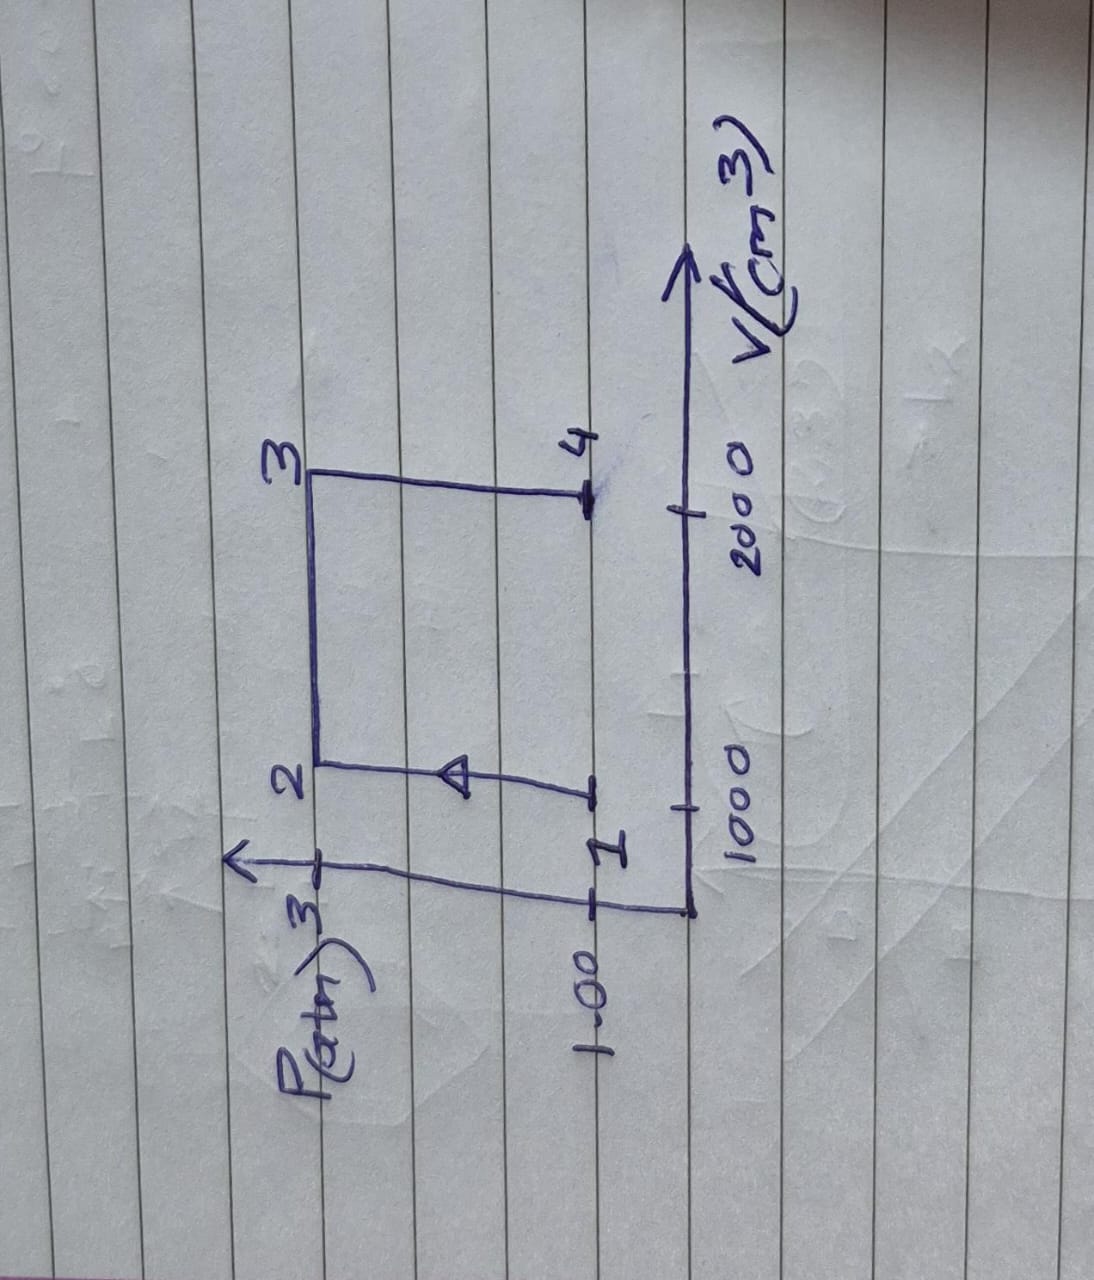 P(atm)
3
2
3
1.00
1
4
1000
2000
V(cm3)